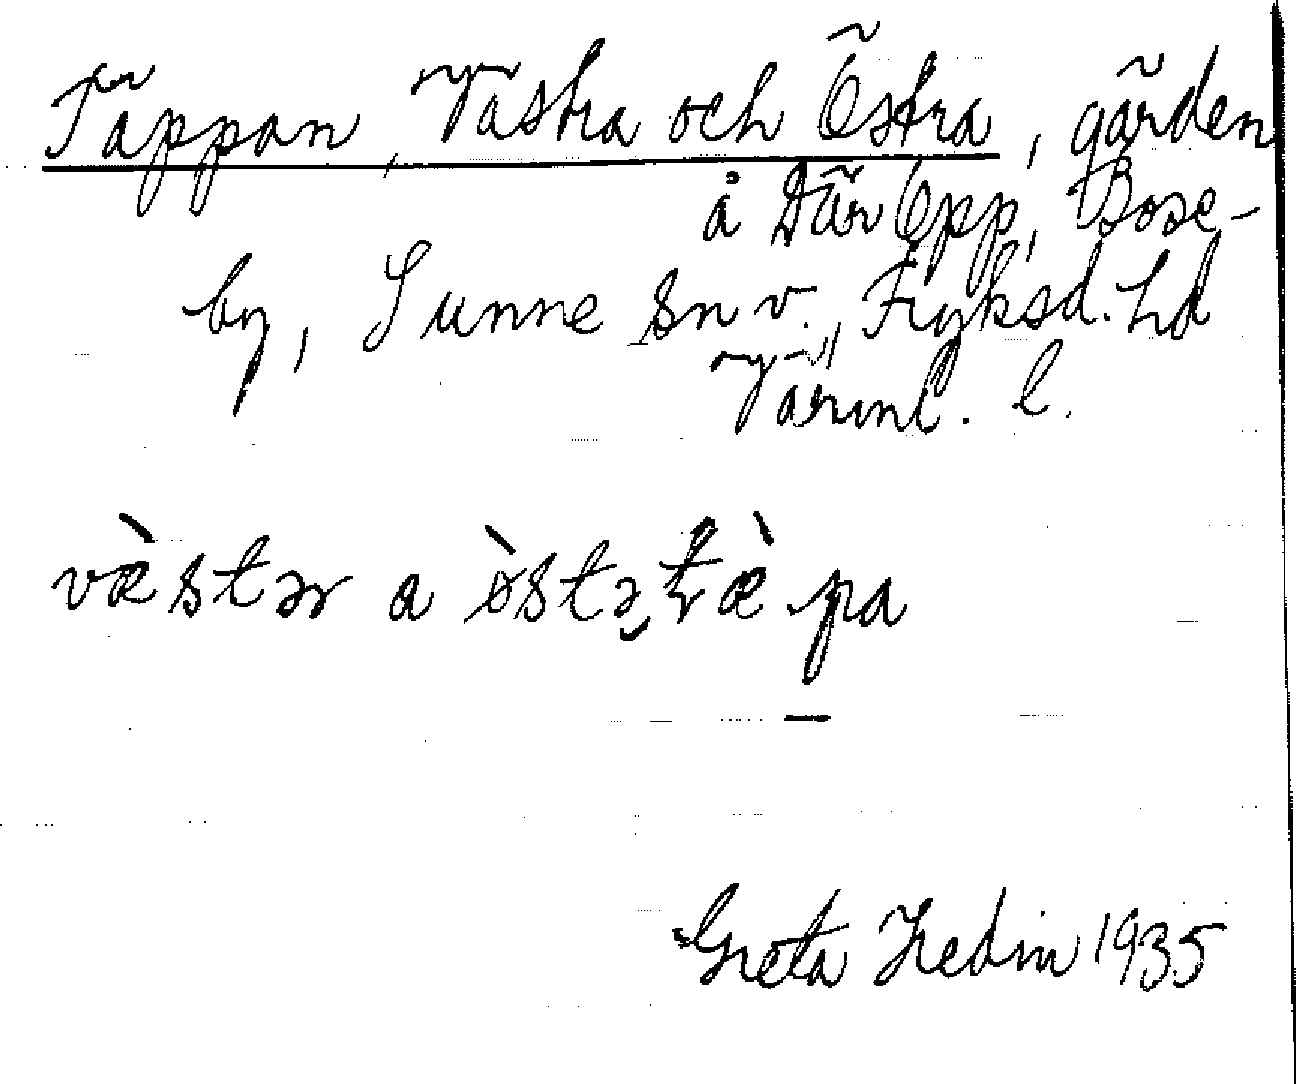 Täppan, Västra och Östra, gården
å Där Opp, Bose-
by, Sunne sn v., Fryksd. hd
Värml. l.
væ̀stər a ø̀stə tæ̀pa
Greta Hedin 1935